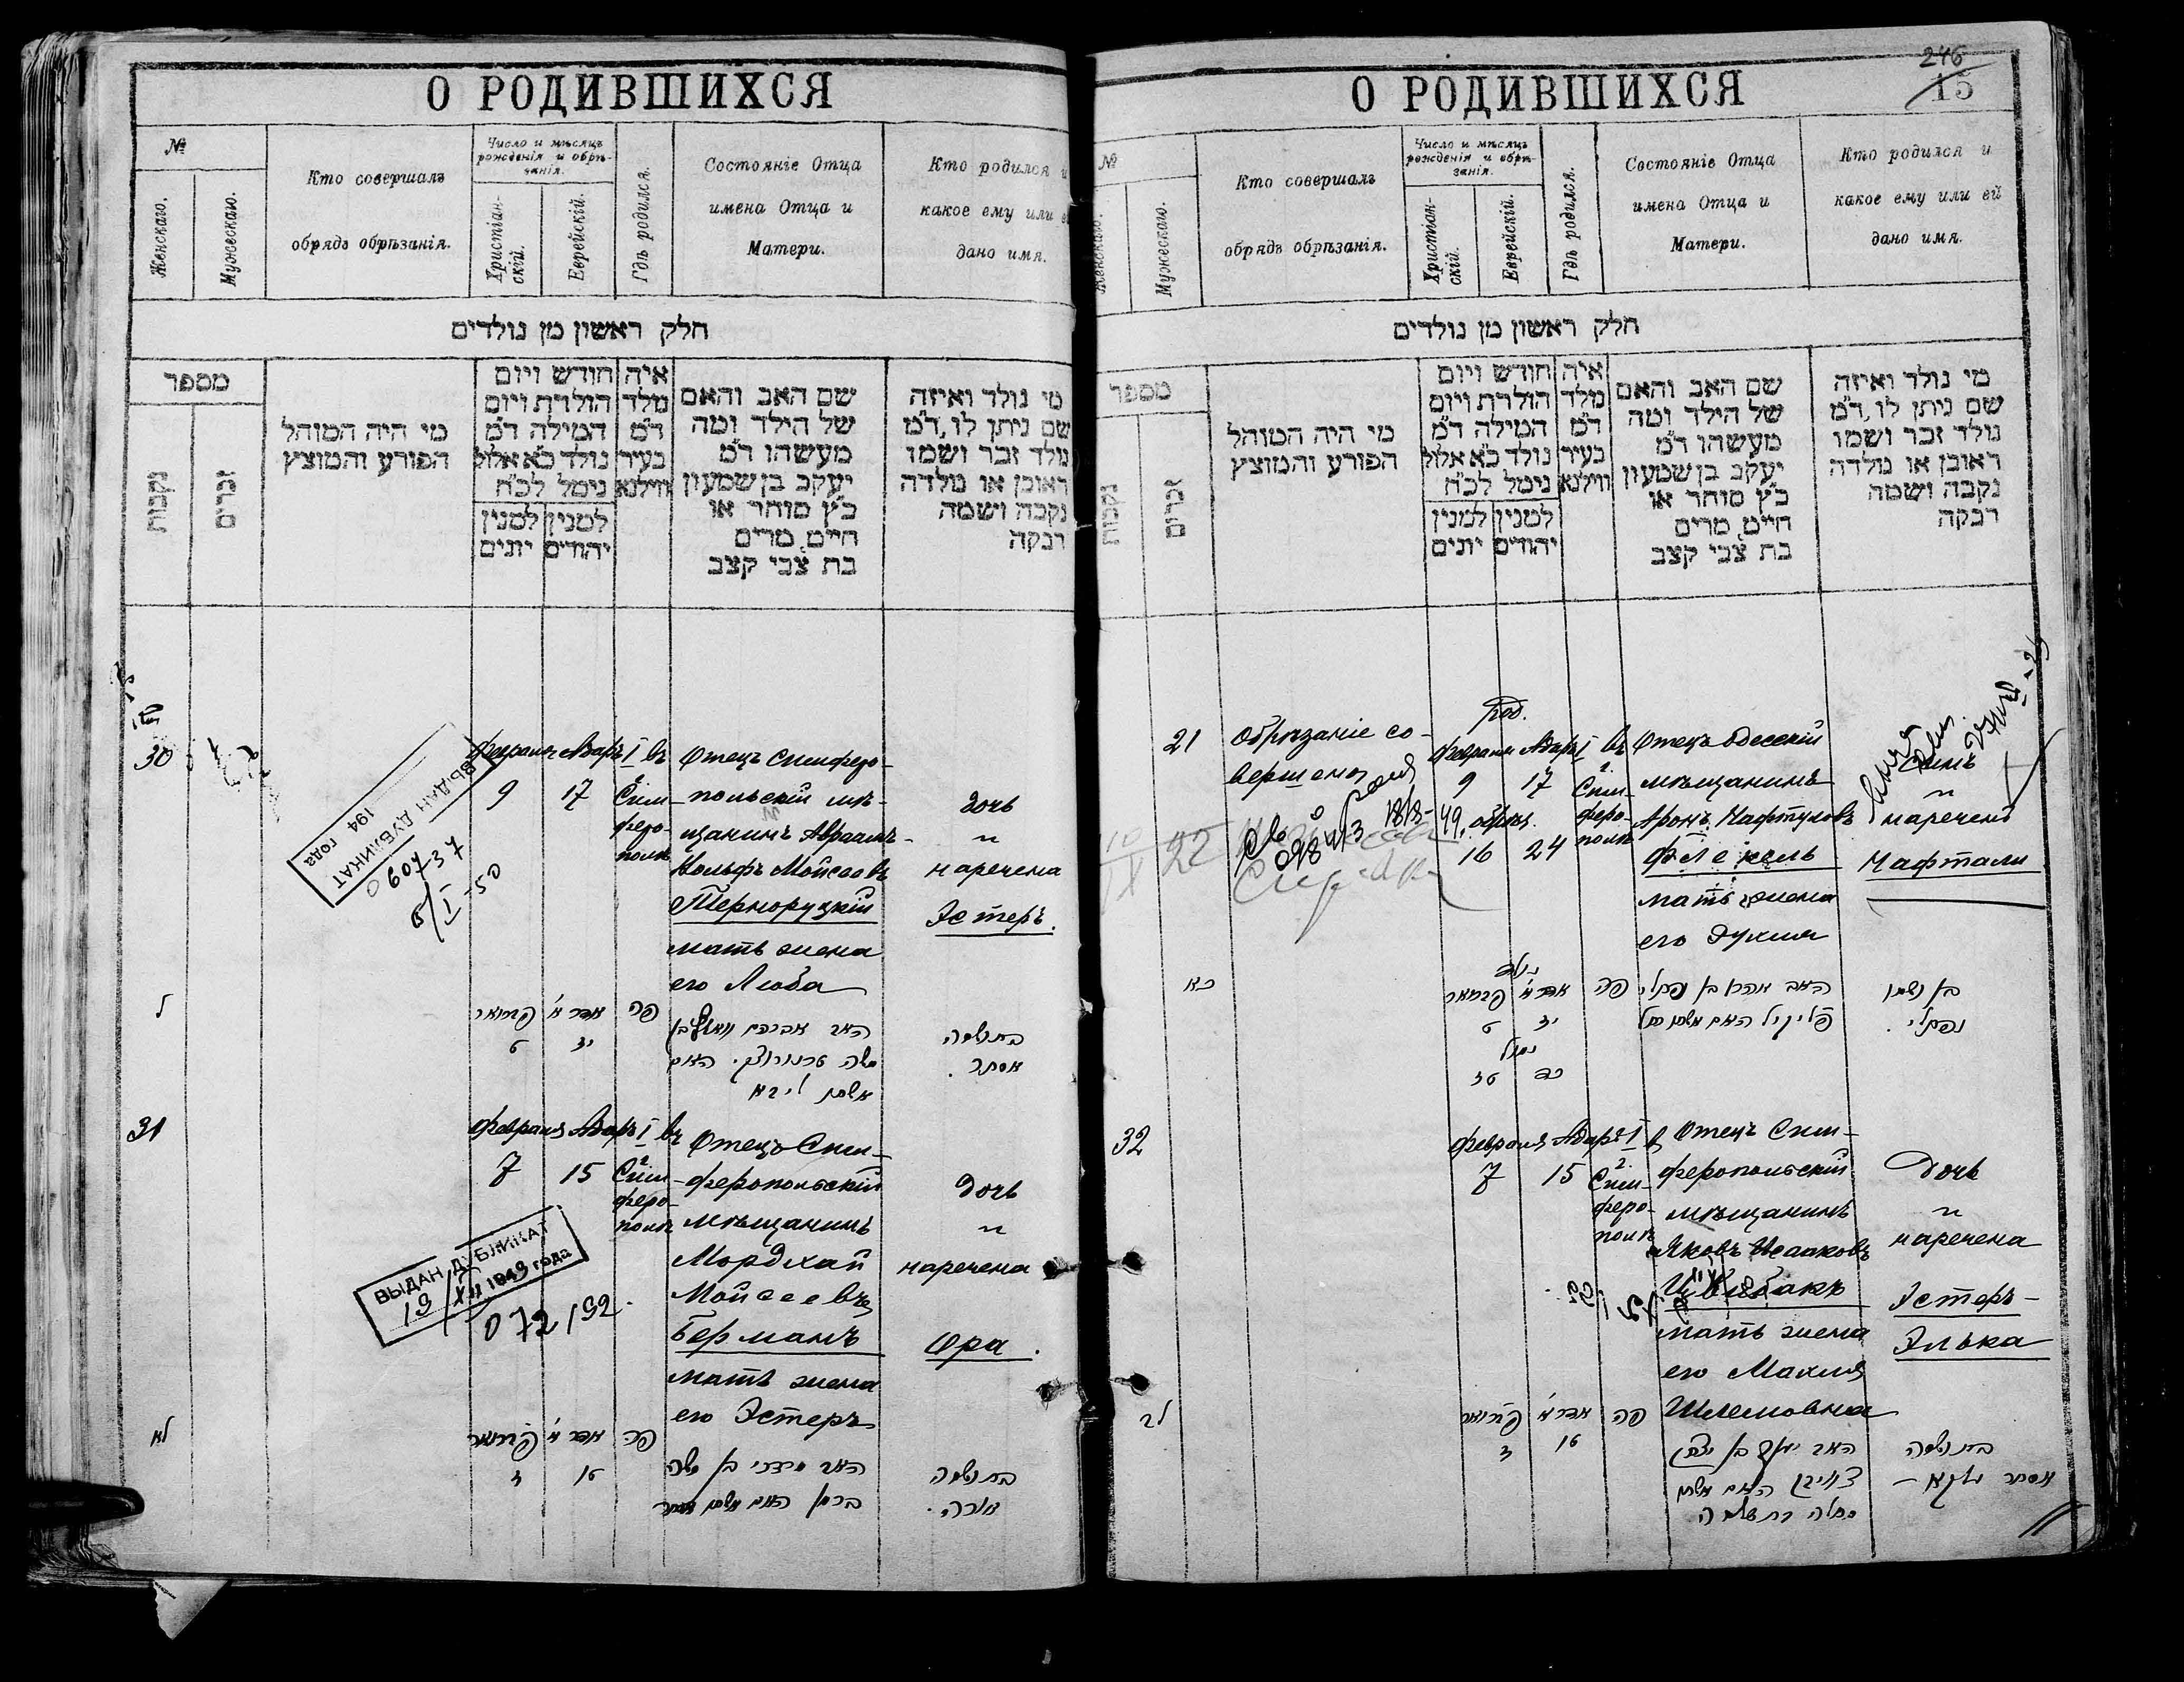 О РОДИВШИХСЯ
№
Женскаго.
Мужескаго.
Кто совершалъ
обрядъ обрѣзанія.
Число и мѣсяцъ
рожденія и обрѣ-
занія.
Христіан-
скій.
Еврейскій.
Гдѣ родился.
Состояніе Отца
имена Отца и
Матери.
Кто родился и
какое ему или
дано имя.
חלק ראשון מן נולדים
מספר
נקבות
זכרים
מי היה המוהל
הפורע והמוצץ
חודש ויום
הולדת ויום
המילה ד״מ
נולד כ״א אלול
נימל לכ״ח
למנין
יהודים
למנין
יונים
איה
מלד
ד״מ
בעיר
ווילנא
שם האב והאם
של הילד ומה
מעשהו ד״מ
יעקב בן שמעון
כ״ץ סוחר או
חיים, מרים
בת צבי קצב
מי נולד ואיזה
שם ניתן לו, ד״מ
נולד זכר ושמו
ראובן או נולדה
נקבה ושמה
רבקה
30
Февраля Адаръ I въ
9 17
Сим-
феро-
полѣ
Отецъ Симферо-
польскій мѣ-
щанинъ Авраамъ-
Вольфъ Мойсеевъ
Терноруцкій
мать жена
его Люба
дочь
наречена
Эстеръ.
ВЫДАН ДУБЛИКАТ
194 года
060737
5/I-50
ל
פברואר
ט
אדר א
יז
פה
האב אברהם וואלף בן
משה טרנורוצקי. האם
אשתו ליבא
בת ושמה
אסתר.
31
Февраля Адаръ I въ
7 15
Сим-
феро-
полѣ
Отецъ Сим-
феропольскій
мѣщанинъ
Мордхай
Мойсеевъ
Берманъ
мать жена
его Эстеръ
дочь
наречена
Ора.
ВЫДАН ДУБЛИКАТ
13/XII 1949 года
072192
לא
פברואר
ז
אדר א
טו
פה
האב מרדכי בן משה
ברמן האם אשתו אסתר
בת ושמה
אורה.
О РОДИВШИХСЯ
246
15
№
Женскаго.
Мужескаго.
Кто совершалъ
обрядъ обрѣзанія.
Число и мѣсяцъ
рожденія и обрѣ-
занія.
Христіан-
скій.
Еврейскій.
Гдѣ родился.
Состояніе Отца
имена Отца и
Матери.
Кто родился и
какое ему или ей
дано имя.
חלק ראשון מן נולדים
מספר
נקבות
זכרים
מי היה המוהל
הפורע והמוצץ
חודש ויום
הולדת ויום
המילה ד״מ
נולד כ״א אלול
נימל לכ״ח
למנין
יהודים
למנין
יונים
איה
מלד
ד״מ
בעיר
ווילנא
שם האב והאם
של הילד ומה
מעשהו ד״מ
יעקב בן שמעון
כ״ץ סוחר או
חיים, מרים
בת צבי קצב
מי נולד ואיזה
שם ניתן לו, ד״מ
נולד זכר ושמו
ראובן או נולדה
נקבה ושמה
רבקה
21
Обрѣзаніе со-
вершено
род.
Февраля Адаръ I въ
9 17
обрѣз.
16 24
Сим-
феро-
полѣ
Отецъ Одесскій
мѣщанинъ
Аронъ Нафтуловъ
Флекель
мать жена
его Эукля
Сынъ
нареченъ
Нафтали
כא
נולד
פברואר
ט
אדר א
יז
נמול
טז
כד
פה
האב אהרן בן נפתלי
פליקיל האם אשתו
בן ושמו
נפתלי.
32
Февраля Адаръ I в
7 15
Сим-
феро-
полѣ
Отецъ Сим-
феропольскій
мѣщанинъ
Яковъ Исааковъ
Цвибакъ
мать жена
его Махля
Шлемовна
Дочь
наречена
Эстеръ-
Элька
לב
פברואר
ז
אדר א
טו
פה
האב יעקב בן יצחק
צוויבק האם אשתו
מחלה בת שלמה
בת ושמה
אסתר עלקא –